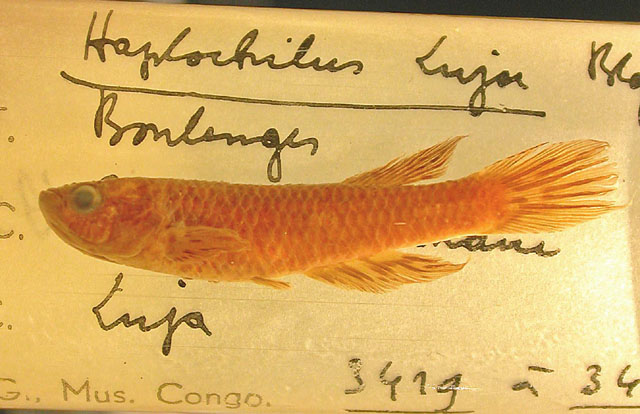 Haplochilus Lujae Blg
Boulenger
Luja
G., Mus. Congo.
3419 à 34